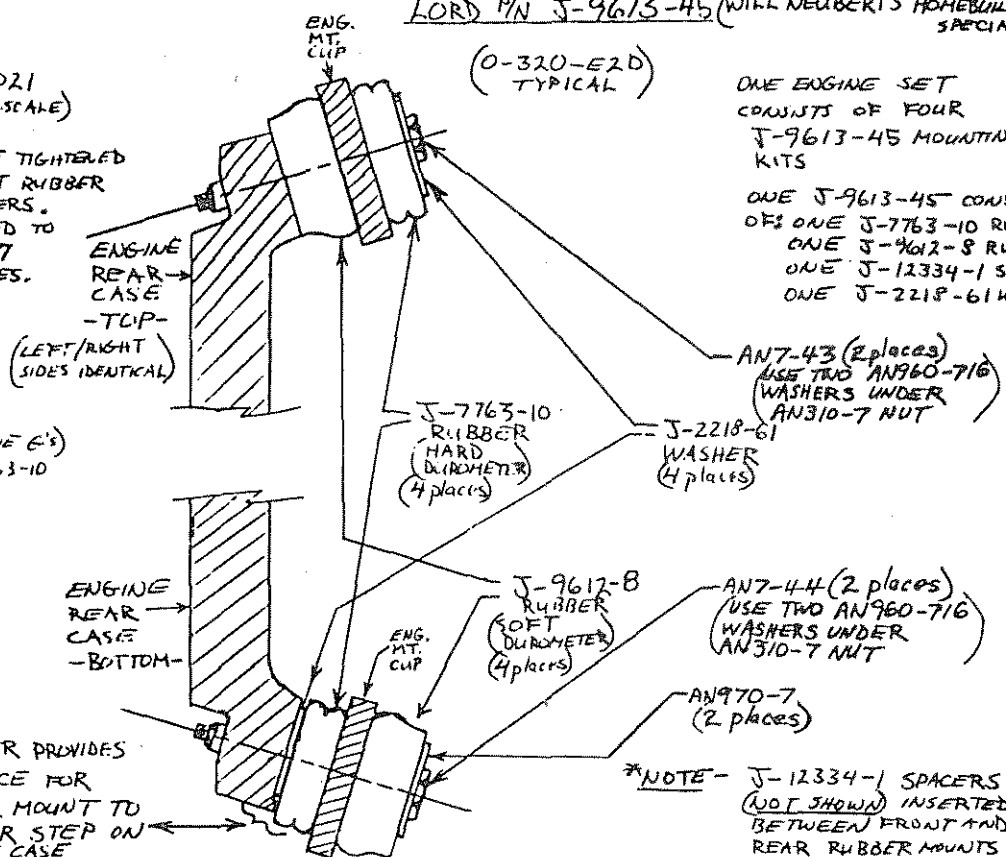 LORD P/N J-9613-45 (WILL NEUBERT'S HOMEBUIL
SPECIA
(O-320-E2D)
TYPICAL
ENG.
MT.
CUP
D21
SCALE)
T TIGHTENED
T RUBBER
ERS.
ED TO
7
ES.
ENGINE
REAR
CASE
-TOP-
(LEFT/RIGHT
SIDES IDENTICAL)
ONE ENGINE SET
CONSISTS OF FOUR
J-9613-45 MOUNTIN
KITS
ONE J-9613-45 CONS
OF: ONE J-7763-10 RU
ONE J-9612-8 RU
ONE J-12334-1 S
ONE J-2218-61 W
AN7-43 (2 places)
(USE TWO AN960-716
WASHERS UNDER
AN310-7 NUT)
J-7763-10
RUBBER
(HARD
DUROMETER)
(4 places)
J-2218-61
WASHER
(4 places)
NE 6's)
63-10
ENGINE
REAR
CASE
-BOTTOM-
ENG.
MT.
CUP
J-9612-8
RUBBER
(SOFT
DUROMETER)
(4 places)
AN7-44 (2 places)
(USE TWO AN960-716
WASHERS UNDER
AN310-7 NUT)
AN970-7
(2 places)
R PROVIDES
CE FOR
MOUNT TO
R STEP ON
CASE
*NOTE- J-12334-1 SPACERS
(NOT SHOWN) INSERTED
BETWEEN FRONT AND
REAR RUBBER MOUNTS